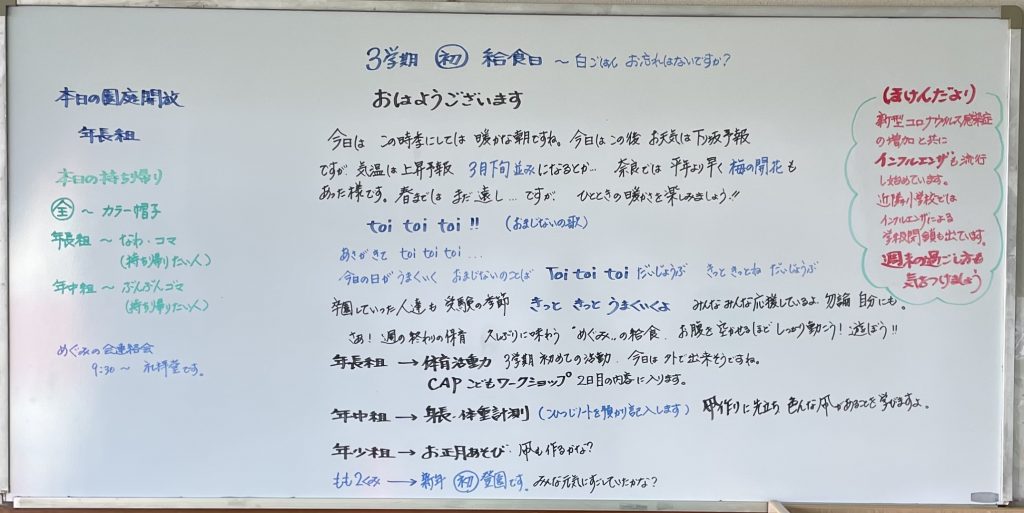 3学期 ㊗初 給食日 ～ 白ごはん お忘れはないですか?
本日の園庭開放
年長組
本日の持ち帰り
全 ～ カラー帽子
年長組 ～ なわ・コマ
(持ち帰りたい人)
年中組 ～ ぶんぶんゴマ
(持ち帰りたい人)
めぐみの会連絡会
9:30 ～ 礼拝堂です。
おはようございます
今日は この時季にしては 暖かな朝ですね。今日はこの後 お天気は下り坂予報
ですが 気温は上昇予報 3月下旬並みになるとか… 奈良では 平年より早く 梅の開花も
あった様です。春までは まだ遠し… ですが、 ひとときの暖かさを楽しみましょう!!
toi toi toi !! (おまじないの歌)
あさがきて toi toi toi …
今日の日がうまくいく おまじないのことば Toi toi toi だいじょうぶ きっと きっとね だいじょうぶ
卒園していった人達も 受験の季節 きっと きっと うまくいくよ みんなみんな応援しているよ。勿論 自分にも。
さあ! 週の終わりの保育 久しぶりに味わう "めぐみ" の給食、お腹を空かせるほど しっかり動こう! 遊ぼう!!
年長組 → 体育活動 3学期 初めての活動、今日は外で出来そうですね。
CAP こどもワークショップ 2日目の内容に入ります。
年中組 → 身長・体重計測 (ひつじノートを預かり記入します) 凧作りに先立ち 色んな凧があることを学びますよ。
年少組 → お正月あそび・凧も作るかな?
もも2くみ → 新年 初 登園です。 みんな元気にすごしていたかな?
(ほけんだより)
新型コロナウィルス感染症
の増加と共に
インフルエンザも流行
し始めています。
近隣小学校では
インフルエンザによる
学級閉鎖も出ています。
週末の過ごし方も
気をつけましょう